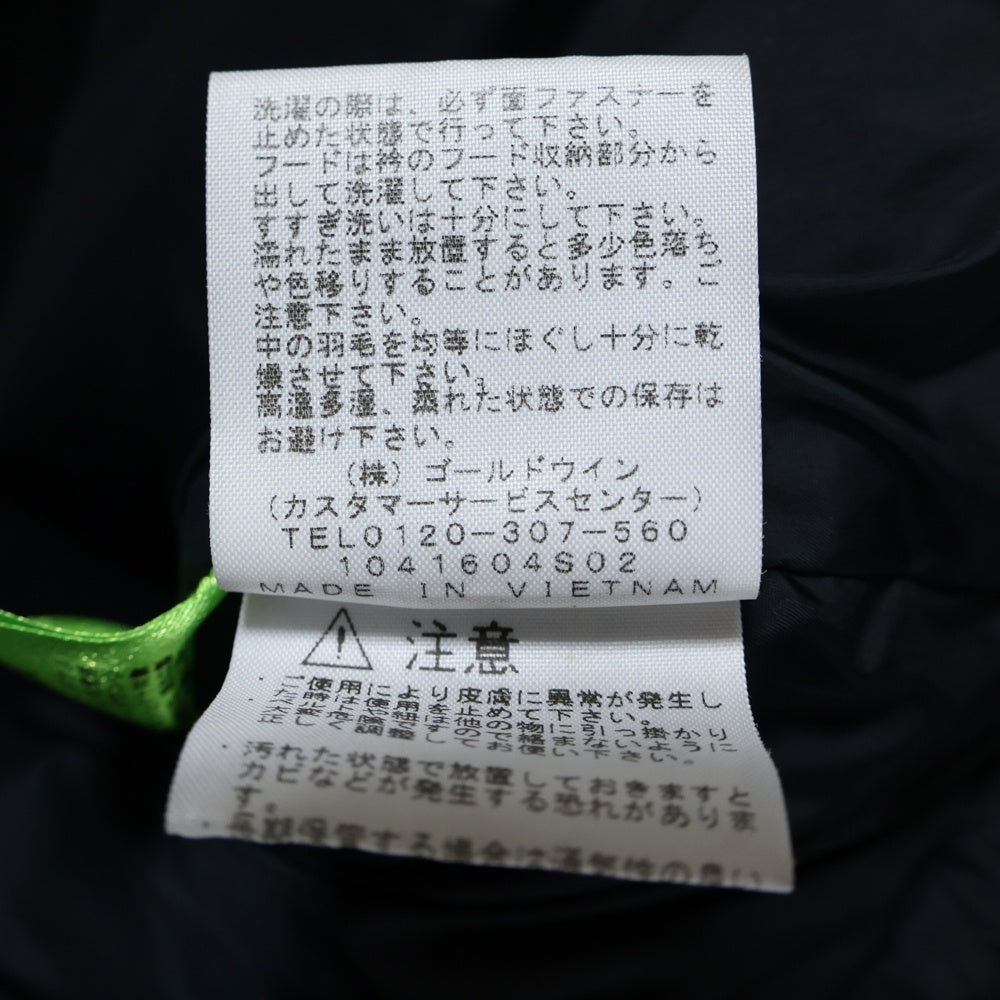 洗濯の際は、必ず面ファスナーを
止めた状態で行って下さい。
フードは衿のフード収納部分から
出して洗濯して下さい。
すすぎ洗いは十分にして下さい。
濡れたまま放置すると多少色落ち
や色移りすることがあります。ご
注意下さい。
中の羽毛を均等にほぐし十分に乾
燥させて下さい。
高温多湿、蒸れた状態での保存は
お避け下さい。
(株)ゴールドウイン
(カスタマーサービスセンター)
TEL0120-307-560
1041604S02
MADE IN VIETNAM
注意
ご使用により皮膚に異常が発生し
た時は使用を止めて下さい。
汚れた状態で放置しておきますと
カビなどが発生する恐れがありま
す。
長期保管する場合は通気性の良い